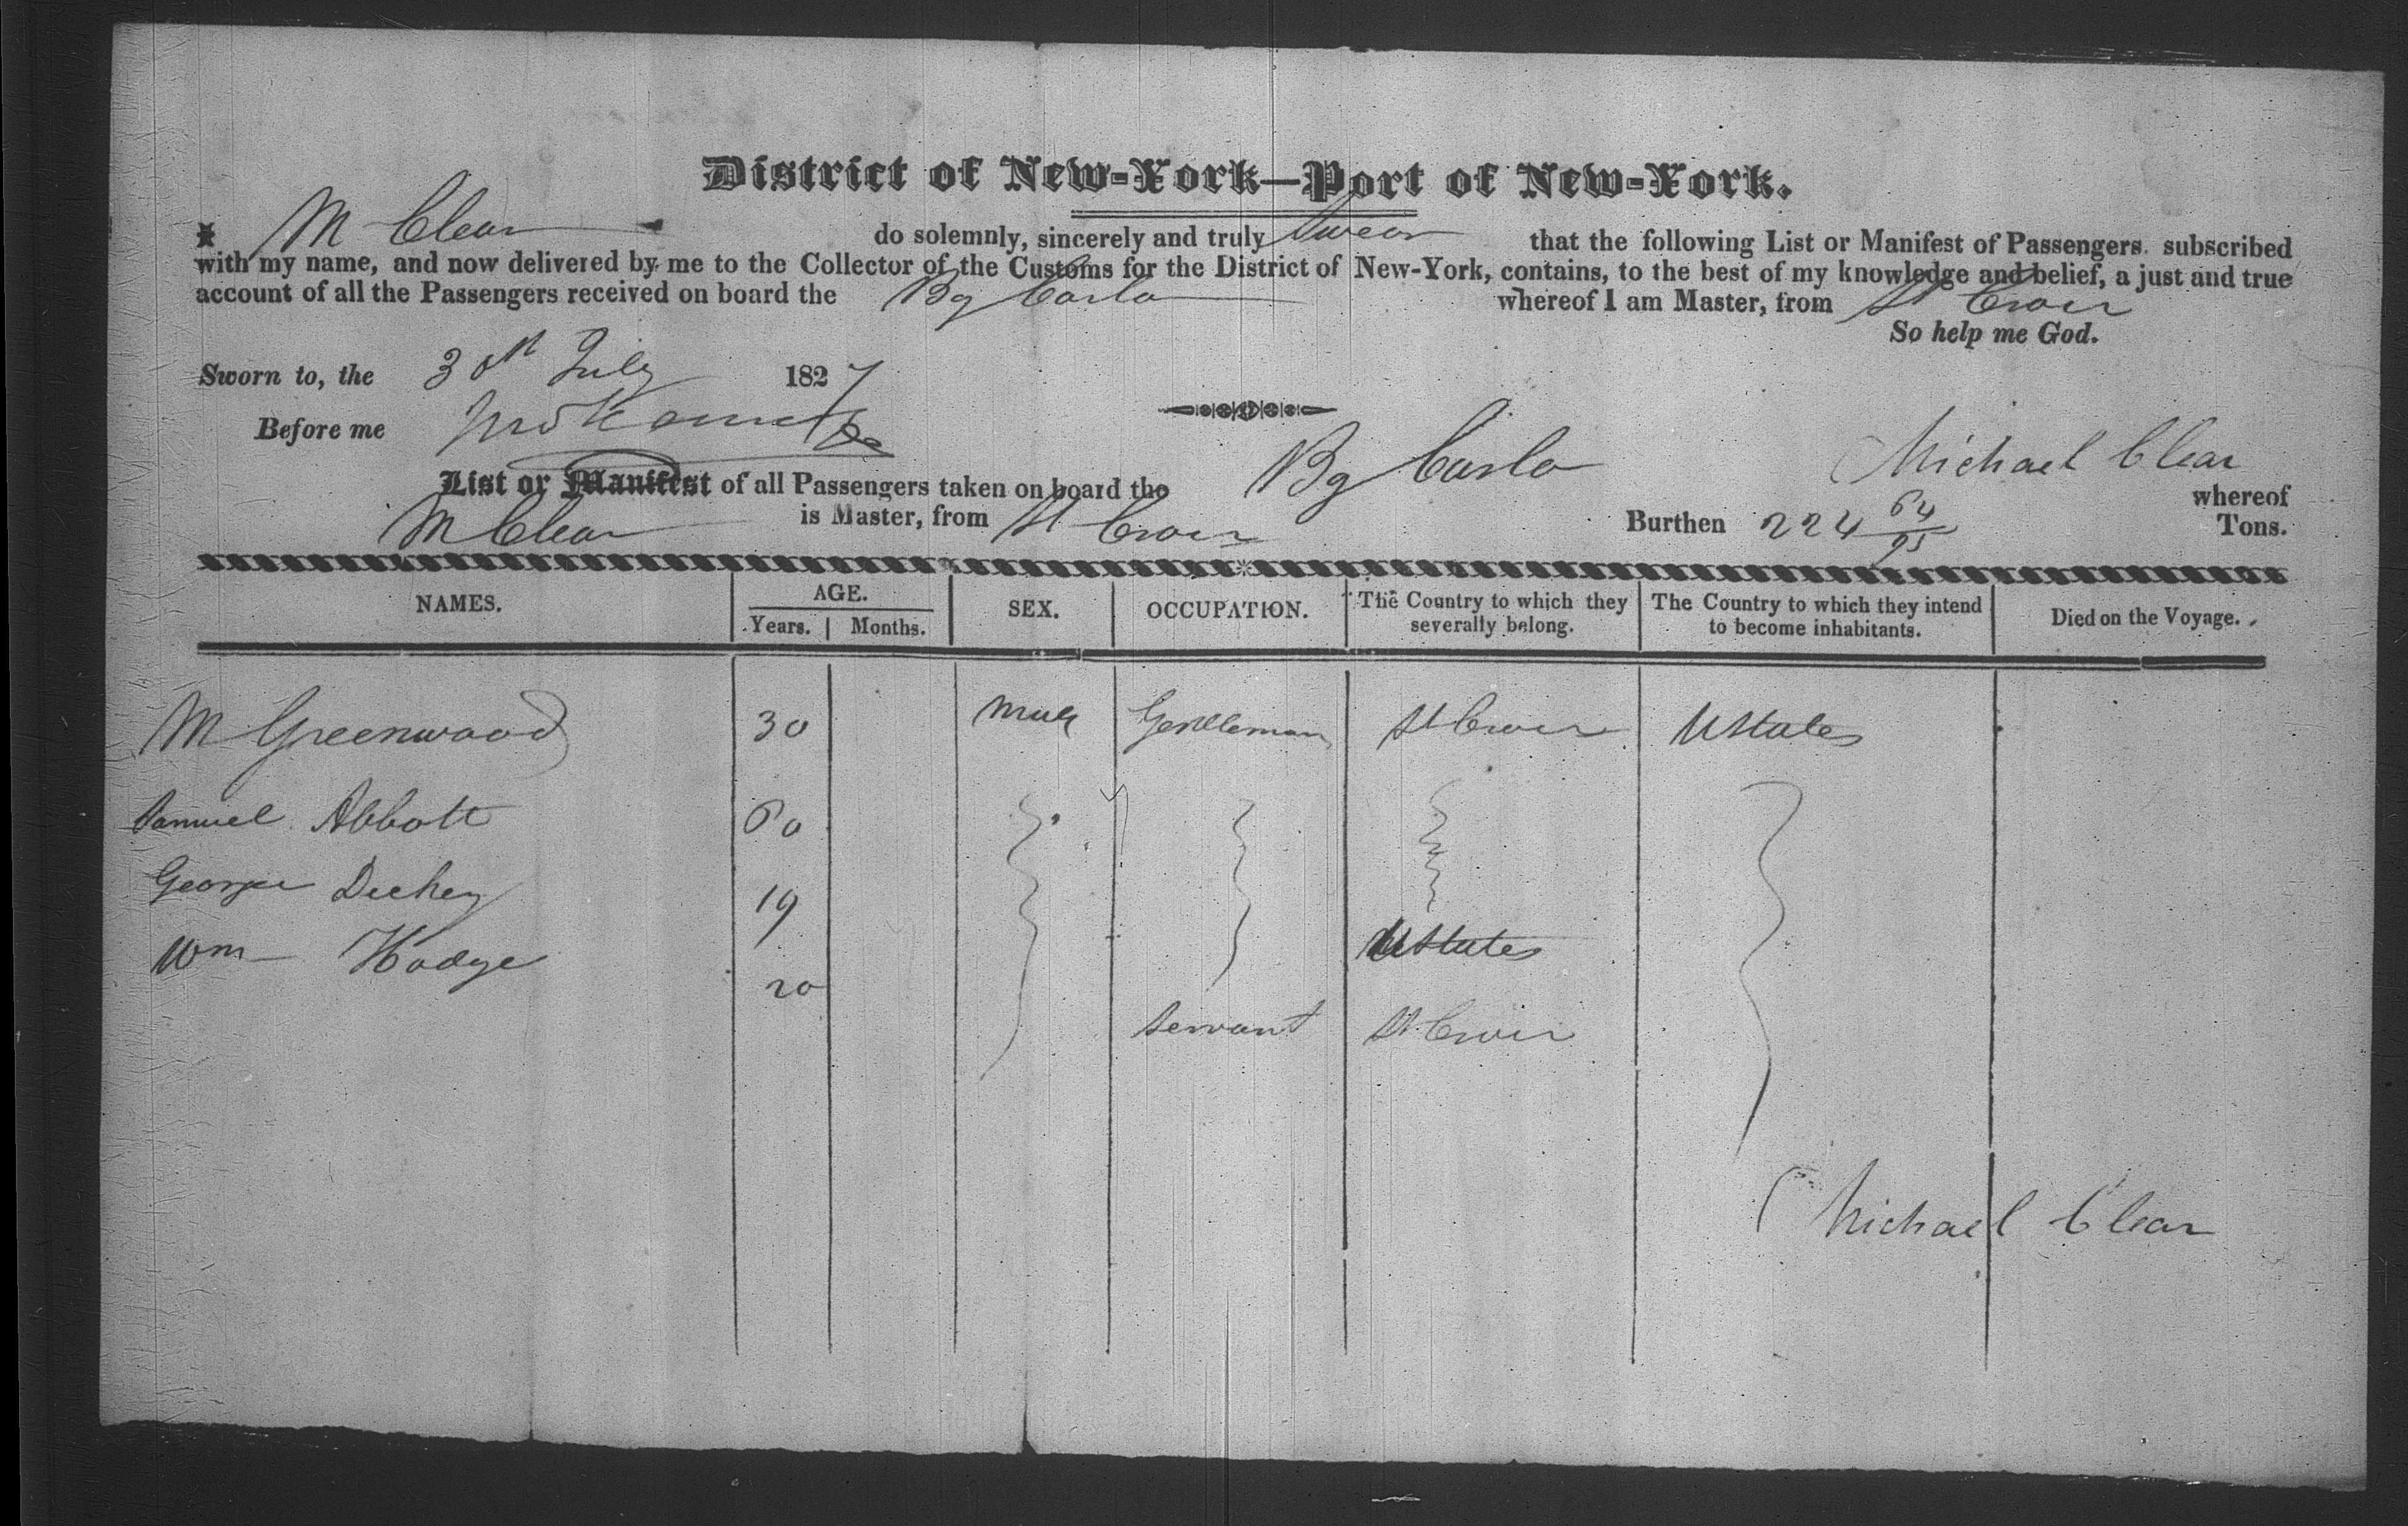 District of New-York—Port of New-York.
I M Clear do solemnly, sincerely and truly Swear that the following List or Manifest of Passengers subscribed
with my name, and now delivered by me to the Collector of the Customs for the District of New-York, contains, to the best of my knowledge and belief, a just and true
account of all the Passengers received on board the Bg Carlo whereof I am Master, from St Croix
So help me God.
Sworn to, the 30th July 1827
Before me
Michael Clear
List or Manifest of all Passengers taken on board the Bg Carlo whereof
M Clear is Master, from St Croix Burthen 224 64/95 Tons.
NAMES. AGE. SEX. OCCUPATION. The Country to which they severally belong. The Country to which they intend to become inhabitants. Died on the Voyage.
Years. Months.
M Greenwood 30 Male Gentleman St Croix UStates
Samuel Abbott 60
George 19
Wm Hodge UStates
20
Servant St Croix
Michael Clear